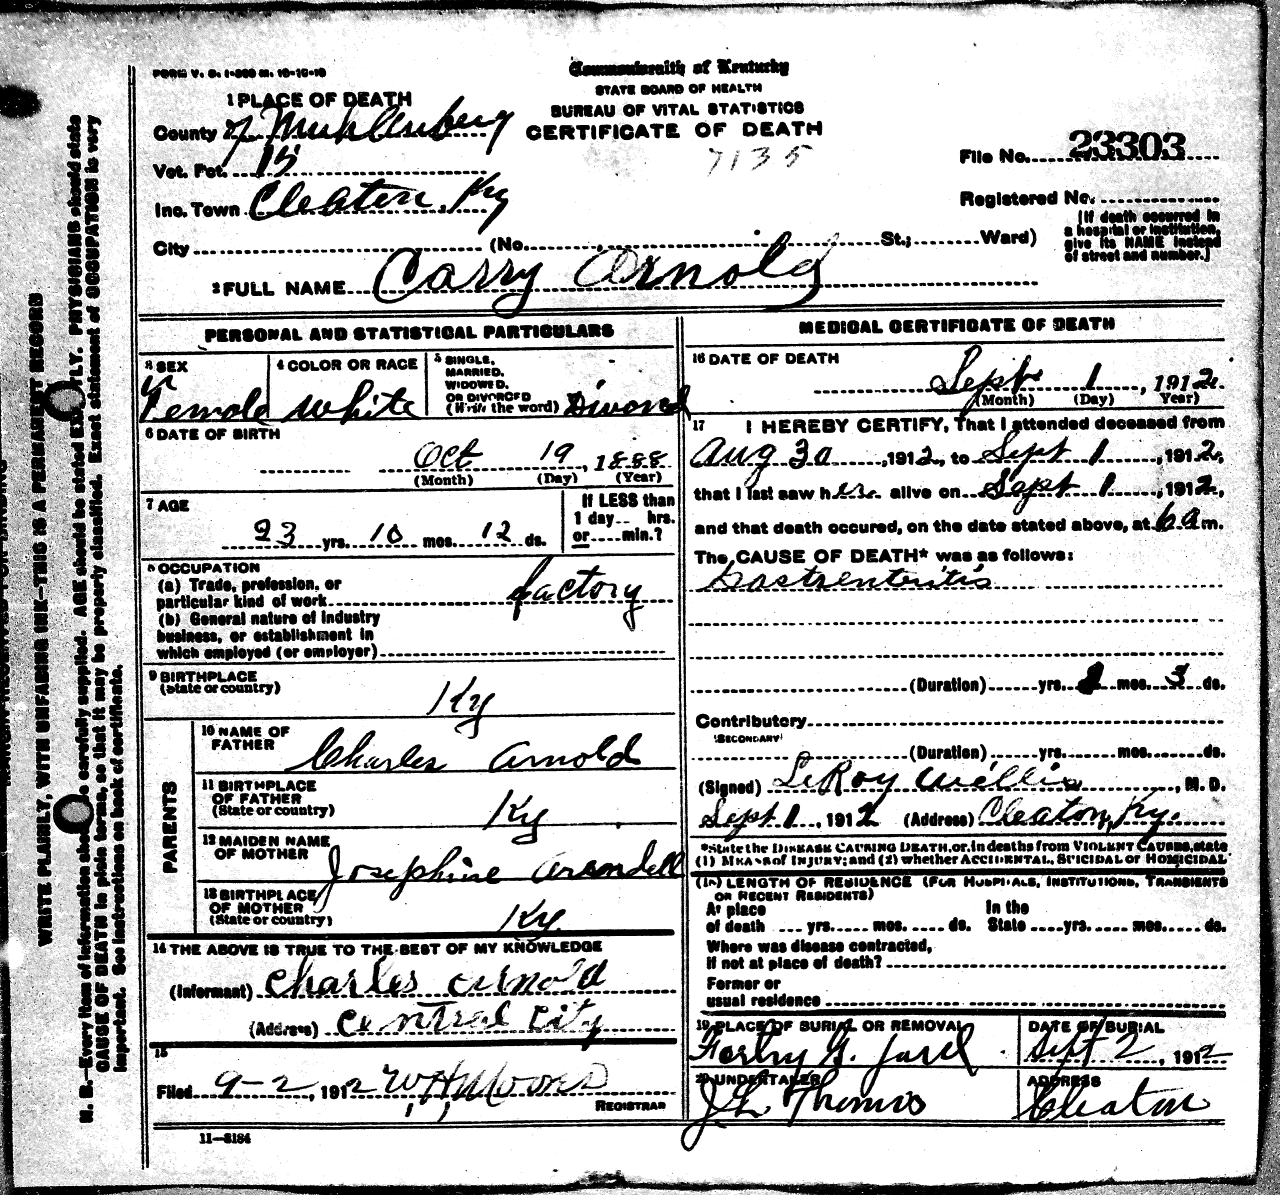 FORM V. S. 1-300 M. 10-10-10
Commonwealth of Kentucky
STATE BOARD OF HEALTH
BUREAU OF VITAL STATISTICS
CERTIFICATE OF DEATH
7135
1 PLACE OF DEATH
County of Muhlenberg
Vot. Pct. 15
Inc. Town Cleaton, Ky
City (No. St.; Ward)
File No. 23303
Registered No.
[If death occurred in
a hospital or institution,
give its NAME instead
of street and number.]
2 FULL NAME Carry Arnold
PERSONAL AND STATISTICAL PARTICULARS
3 SEX Female
4 COLOR OR RACE White
5 SINGLE,
MARRIED,
WIDOWED,
OR DIVORCED
(Write the word) Divorced
6 DATE OF BIRTH
Oct 19, 1888
(Month) (Day) (Year)
7 AGE
23 yrs. 10 mos. 12 ds.
If LESS than
1 day-- hrs.
or----min.?
8 OCCUPATION
(a) Trade, profession, or
particular kind of work factory
(b) General nature of industry
business, or establishment in
which employed (or employer)
9 BIRTHPLACE
(State or country) Ky
PARENTS
10 NAME OF
FATHER Charles Arnold
11 BIRTHPLACE
OF FATHER
(State or country) Ky
12 MAIDEN NAME
OF MOTHER Josephine Arendell
13 BIRTHPLACE
OF MOTHER
(State or country) Ky.
14 THE ABOVE IS TRUE TO THE BEST OF MY KNOWLEDGE
(Informant) Charles Arnold
(Address) Central City
15
Filed 9-2, 1912 W H Moons
REGISTRAR
11-3184
MEDICAL CERTIFICATE OF DEATH
16 DATE OF DEATH
Sept 1, 1912
(Month) (Day) Year)
17 I HEREBY CERTIFY, That I attended deceased from
Aug 30, 1912, to Sept 1, 1912,
that I last saw her alive on Sept 1, 1912,
and that death occured, on the date stated above, at 6 a m.
The CAUSE OF DEATH* was as follows:
Gastrenteritis
(Duration) yrs. mos. 3 ds.
Contributory
(SECONDARY)
(Duration) yrs. mos. ds.
(Signed) LeRoy Willis, M. D.
Sept 1, 1912 (Address) Cleaton, Ky.
*State the DISEASE CAUSING DEATH, or, in deaths from VIOLENT CAUSES, state
(1) MEANS of INJURY; and (2) whether ACCIDENTAL, SUICIDAL or HOMICIDAL
LENGTH OF RESIDENCE (FOR HOSPITALS, INSTITUTIONS, TRANSIENTS
OR RECENT RESIDENTS)
At place In the
of death yrs. mos. ds. State yrs. mos. ds.
Where was disease contracted,
if not at place of death?
Former or
usual residence
19 PLACE OF BURIAL OR REMOVAL
DATE OF BURIAL
Sept 2, 1912
20 UNDERTAKER
J L Thomas
ADDRESS
Cleaton
WRITE PLAINLY, WITH UNFADING INK—THIS IS A PERMANENT RECORD
N. B.—Every item of information should be carefully supplied. AGE should be stated EXACTLY. PHYSICIANS should state
CAUSE OF DEATH in plain terms, so that it may be properly classified. Exact statement of OCCUPATION is very
important. See instructions on back of certificate.